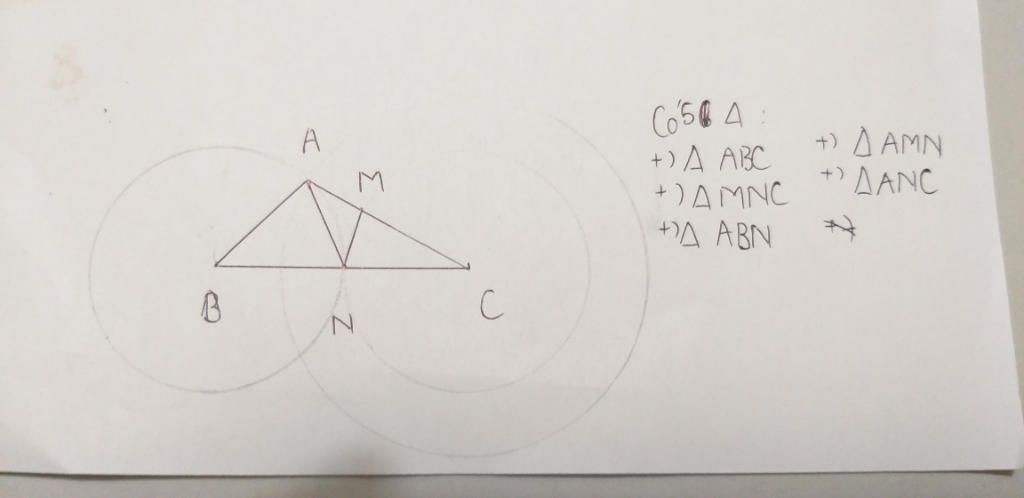 A
M
B
N
C
Có 5 Δ :
+) Δ ABC
+) Δ MNC
+) Δ ABN
+) Δ AMN
+) Δ ANC